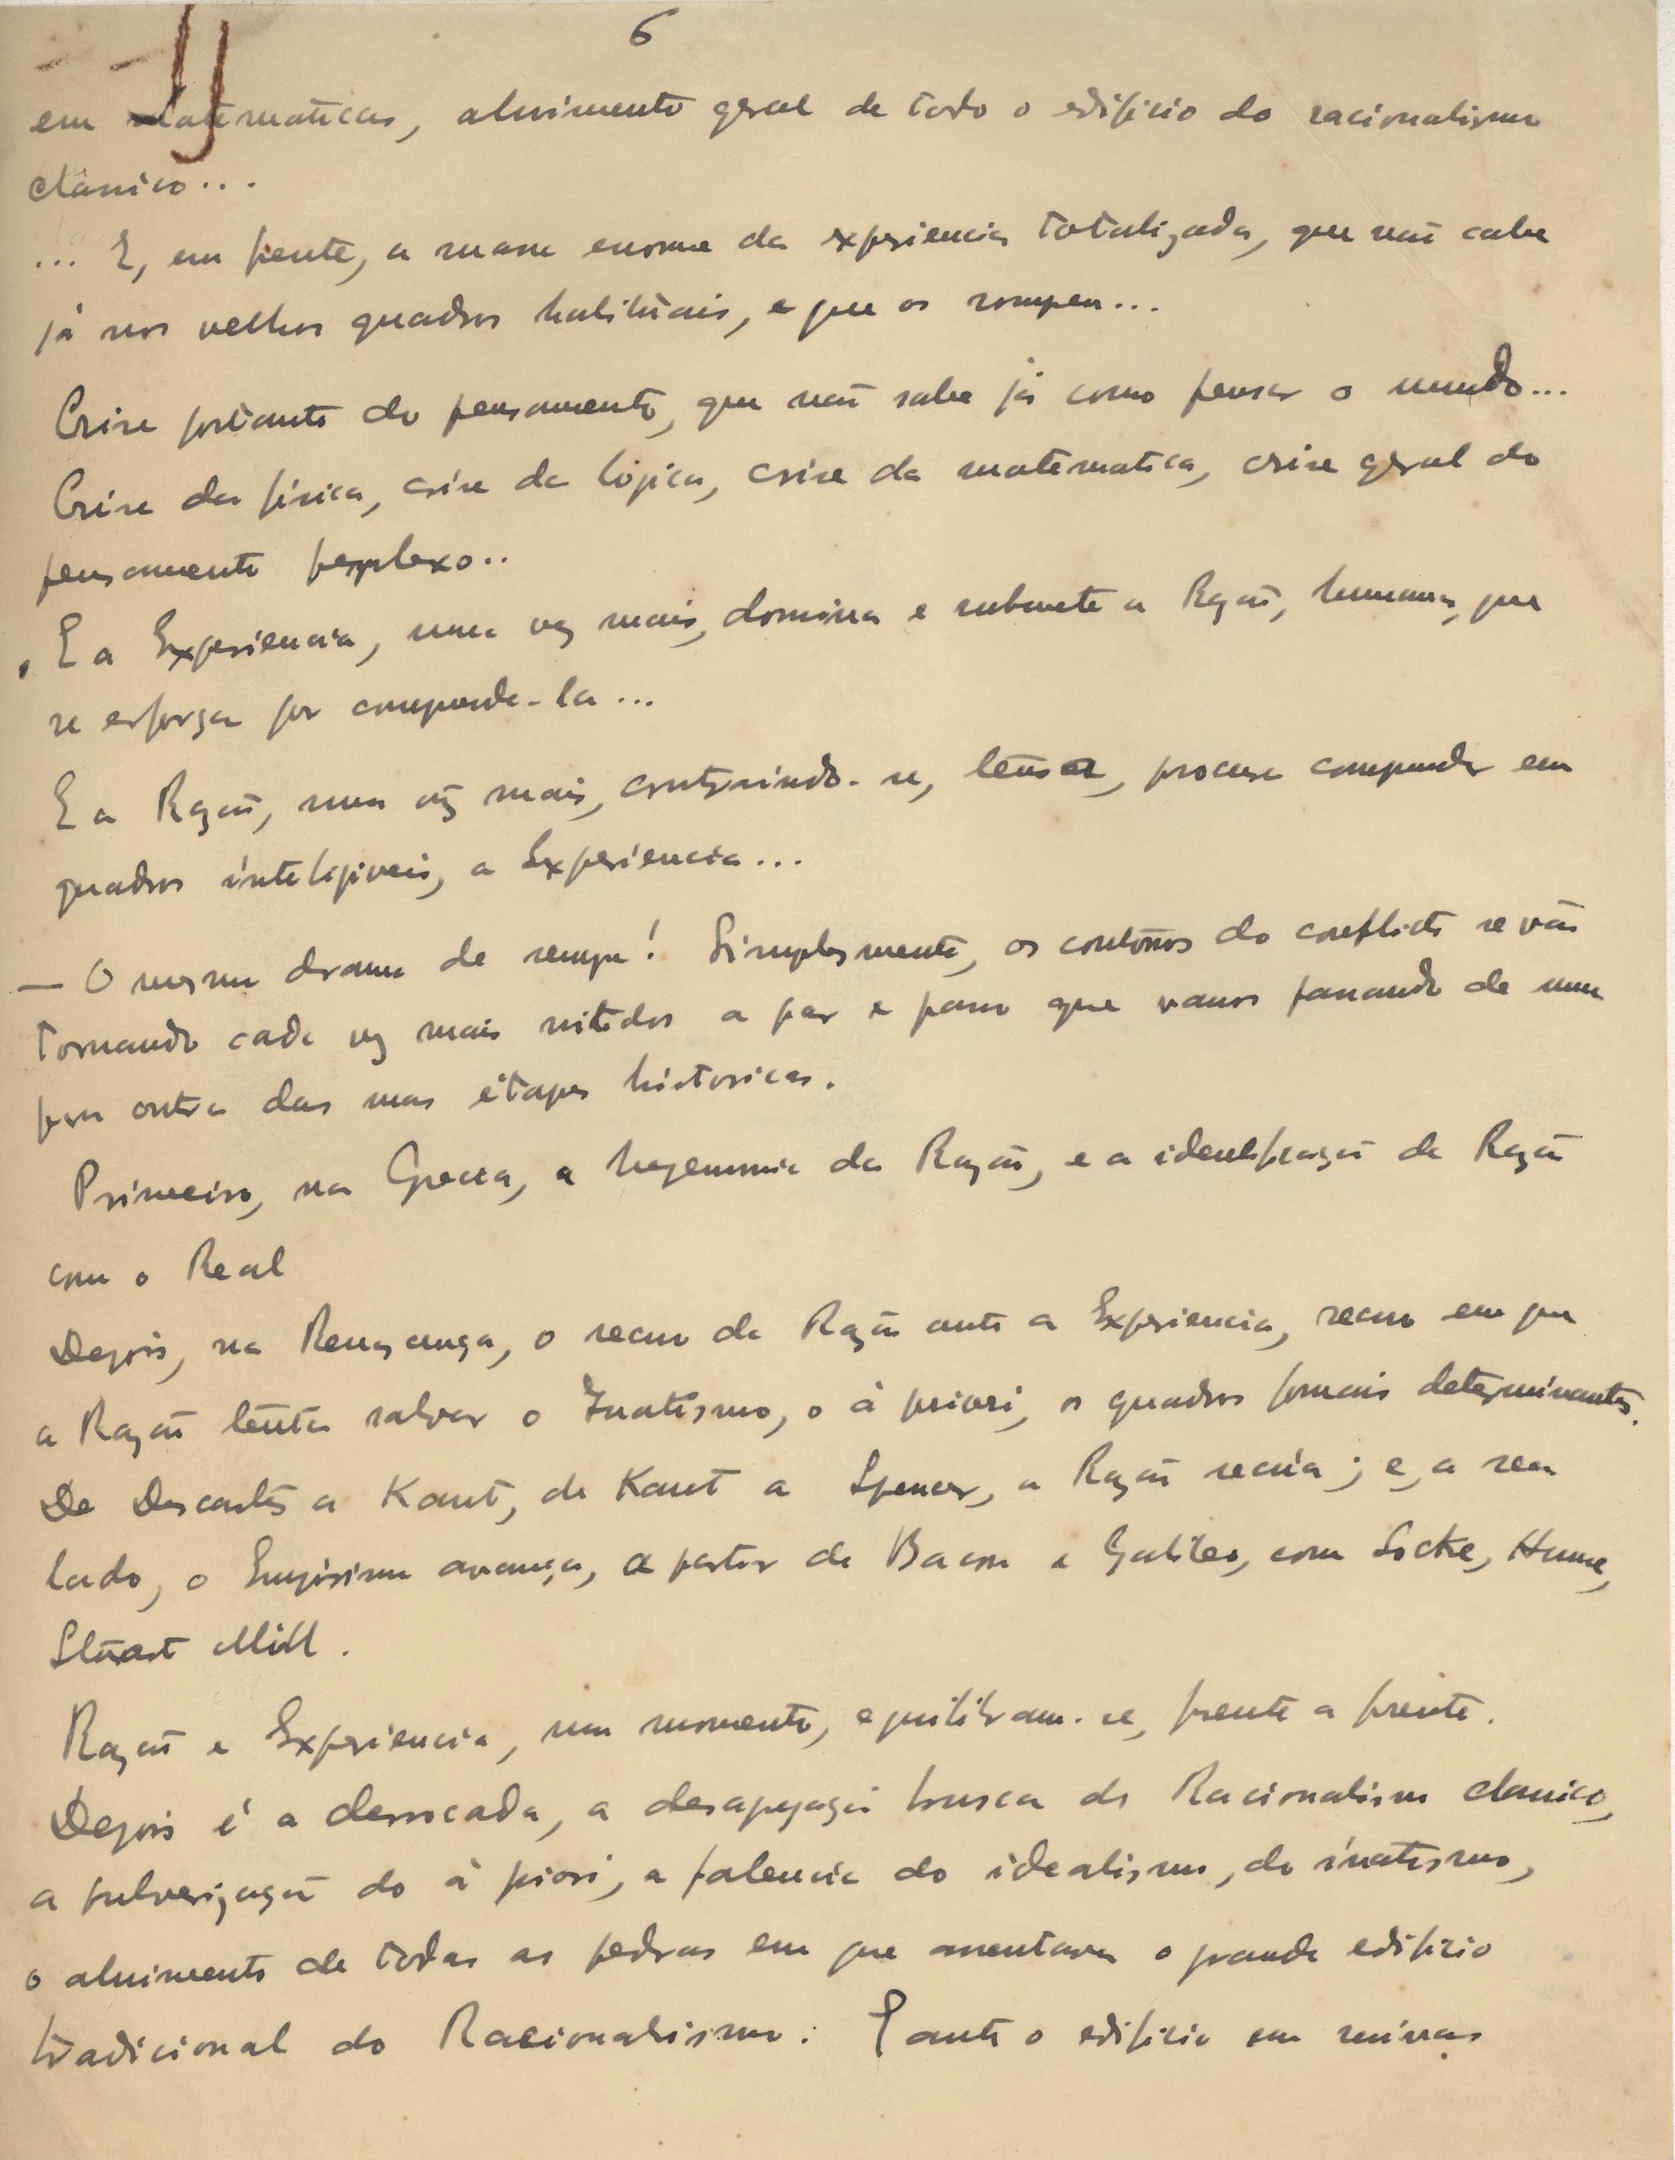 6
em Matematicas, aluimento geral de todo o edificio do racionalismo
classico...
... E, em frente, a massa enorme da experiencia totalizada, que não cabe
já nos velhos quadros habituais, e que os rompeu...
Crise portanto do pensamento, que não sabe já como pensar o mundo...
Crise da fisica, crise da lógica, crise da matematica, crise geral do
pensamento perplexo..
E a Experiencia, uma vez mais, domina e submete a Razão, humana, que
se esforça por compreende-la...
E a Razão, uma vez mais, contraindo-se, tensa, procura compreender em
quadros inteligiveis, a Experiencia...
— O mesmo drama de sempre! Simplesmente, os contornos do conflicto se vão
tornando cada vez mais nitidos a par e passo que vamos passando de uma
para outra das suas étapes historicas.
Primeiro, na Grecia, a hegemonia da Razão, e a identificação da Razão
com o Real
Depois, na Renascença, o recuo da Razão ante a Experiencia, recuo em que
a Razão tenta salvar o Inatismo, o à priori, os quadros formais determinantes.
De Descartes a Kant, de Kant a Spencer, a Razão recúa; e, a seu
lado, o Empirismo avança, a partir de Bacon e Galileo, com Locke, Hume,
Stuart Mill.
Razão e Experiencia, um momento, equilibram-se, frente a frente.
Depois é a derrocada, a desaparição brusca do Racionalismo classico,
a pulverização do à priori, a falencia do idealismo, do inatismo,
o aluimento de todas as pedras em que assentava o grande edificio
tradicional do Racionalismo. E ante o edificio em ruinas